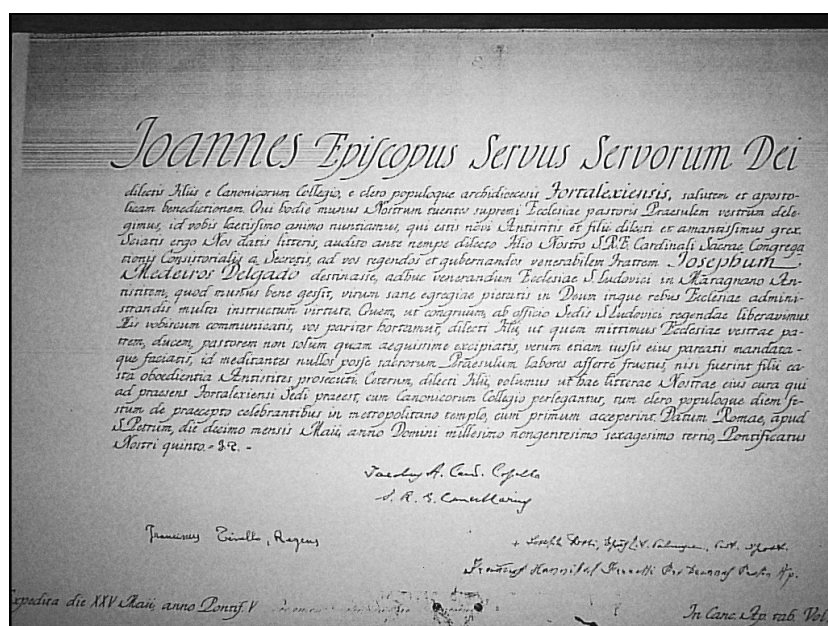 Joannes Episcopus Servus Servorum Dei
dilectis filiis e Canonicorum Collegio, e clero populoque archidioecesis Fortalexiensis, salutem et aposto-
licam benedictionem. Qui hodie munus Nostrum tuentes supremi Ecclesiae pastoris Praesulem vestrum dele-
gimus, id vobis laetissimo animo nuntiamus, qui estis novi Antistitis et filii dilecti et amantissimus grex.
Sciatis ergo Nos datis litteris, audito ante nempe dilecto filio Nostro S.R.E. Cardinali Sacrae Congrega
tionis Consistorialis a Secretis, ad vos regendos et gubernandos venerabilem fratrem Josephum
Medeiros Delgado destinasse, adhuc venerandum Ecclesiae S. Ludovici in Maragnano An-
tistitem, quod munus bene gessit, virum sane egregiae pietatis in Deum inque rebus Ecclesiae admini-
strandis multa instructum virtute. Quem, ut congruum, ab officio Sedis S. Ludovici regendae liberavimus.
His vobiscum communicatis, vos pariter hortamur, dilecti filii, ut quem mittimus Ecclesiae vestrae pa-
trem, ducem, pastorem non solum quam aequissime excipiatis, verum etiam iussis eius pareatis mandata-
que faciatis, id meditantes nullos posse sacrorum Praesulum labores afferre fructus, nisi fuerint filii ea-
sta oboedientia Antistites prosecuti. Ceterum, dilecti filii, volumus ut hae litterae Nostrae eius cura qui
ad praesens Fortalexiensi Sedi praeest, cum Canonicorum Collegio perlegantur, tum clero populoque diem fe-
stum de praecepto celebrantibus in metropolitano templo, cum primum acceperint. Datum Romae, apud
S. Petrum, die decimo mensis Maii, anno Domini millesimo nongentesimo sexagesimo tertio, Pontificatus
Nostri quinto.-
Jacobus A. Card. Copello
S. R. E. Cancellarius
Franciscus Tinello, Regens
+ Joseph
Expedita die XXV Maii, anno Pontif. V
In Canc. Ap. tab. Vol.